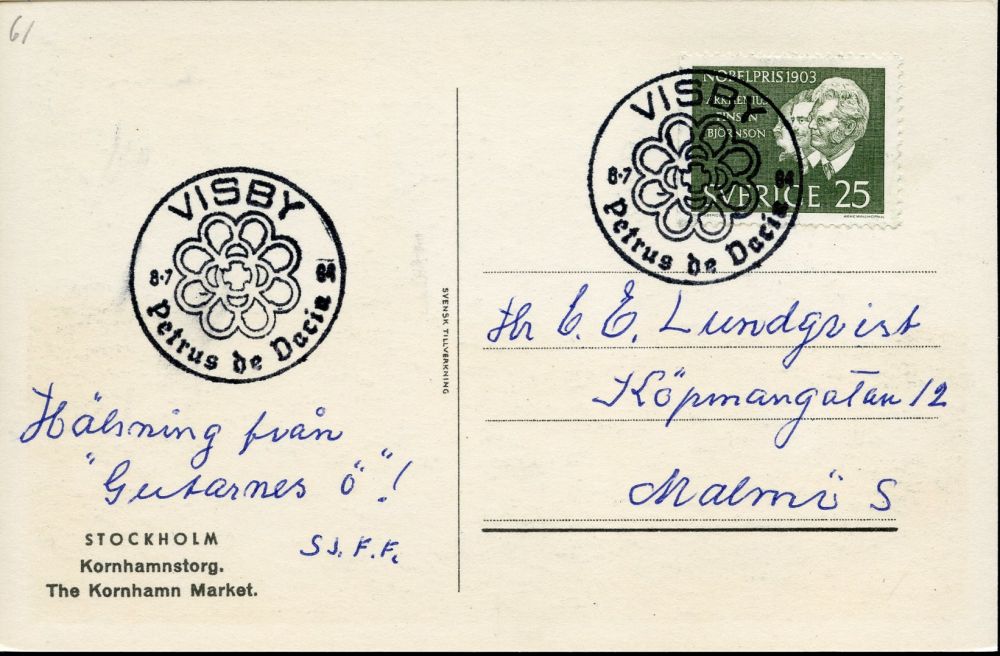 61
VISBY
8·7 64
Petrus de Dacia
Hälsning från
"Gutarnes ö"!
S.J.F.F.
STOCKHOLM
Kornhamnstorg.
The Kornhamn Market.
SVENSK TILLVERKNING
NOBELPRIS 1903
ARRHENIUS
FINSEN
BJÖRNSON
SVERIGE 25
VISBY
8·7 64
Petrus de Dacia
Hr C. E. Lundqvist
Köpmangatan 12
Malmö S